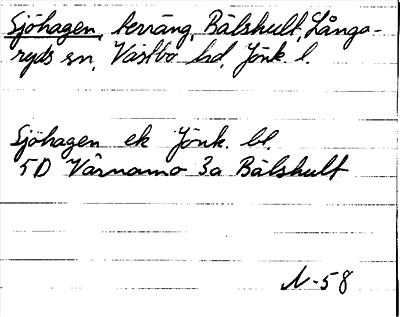 Sjöhagen, terräng, Bälshult, Långa-
ryds sn, Västbo hd, Jönk l.
Sjöhagen ek Jönk. bl.
5D Värnamo 3a Bälshult
N-58